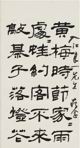 黄梅時節家雨
處蛙約客不來
敲棊子落燈花